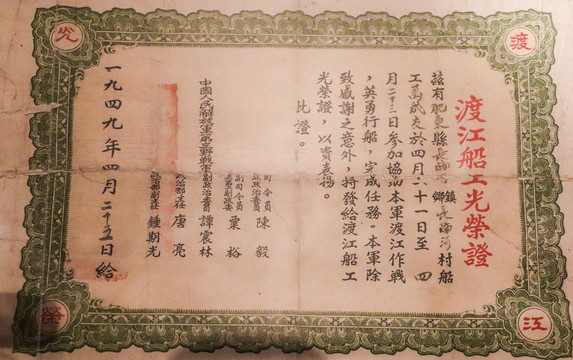 渡
江
光
榮
渡江船工光榮證
茲有肥東縣長臨鎮鄉長臨河村船
工萬成友於四月二十一日至四
月二十三日參加協助本軍渡江作戰
，英勇行船，完成任務。本軍除
致感謝之意外，特發給渡江船工
光榮證，以資表揚。
此證。
司令員兼政治委員 陳毅
副司令員兼第二副政委 粟裕
中國人民解放軍第三野戰軍副政治委員 譚震林
政治部主任 唐亮
政治部副主任 鍾期光
一九四九年四月二十五日給